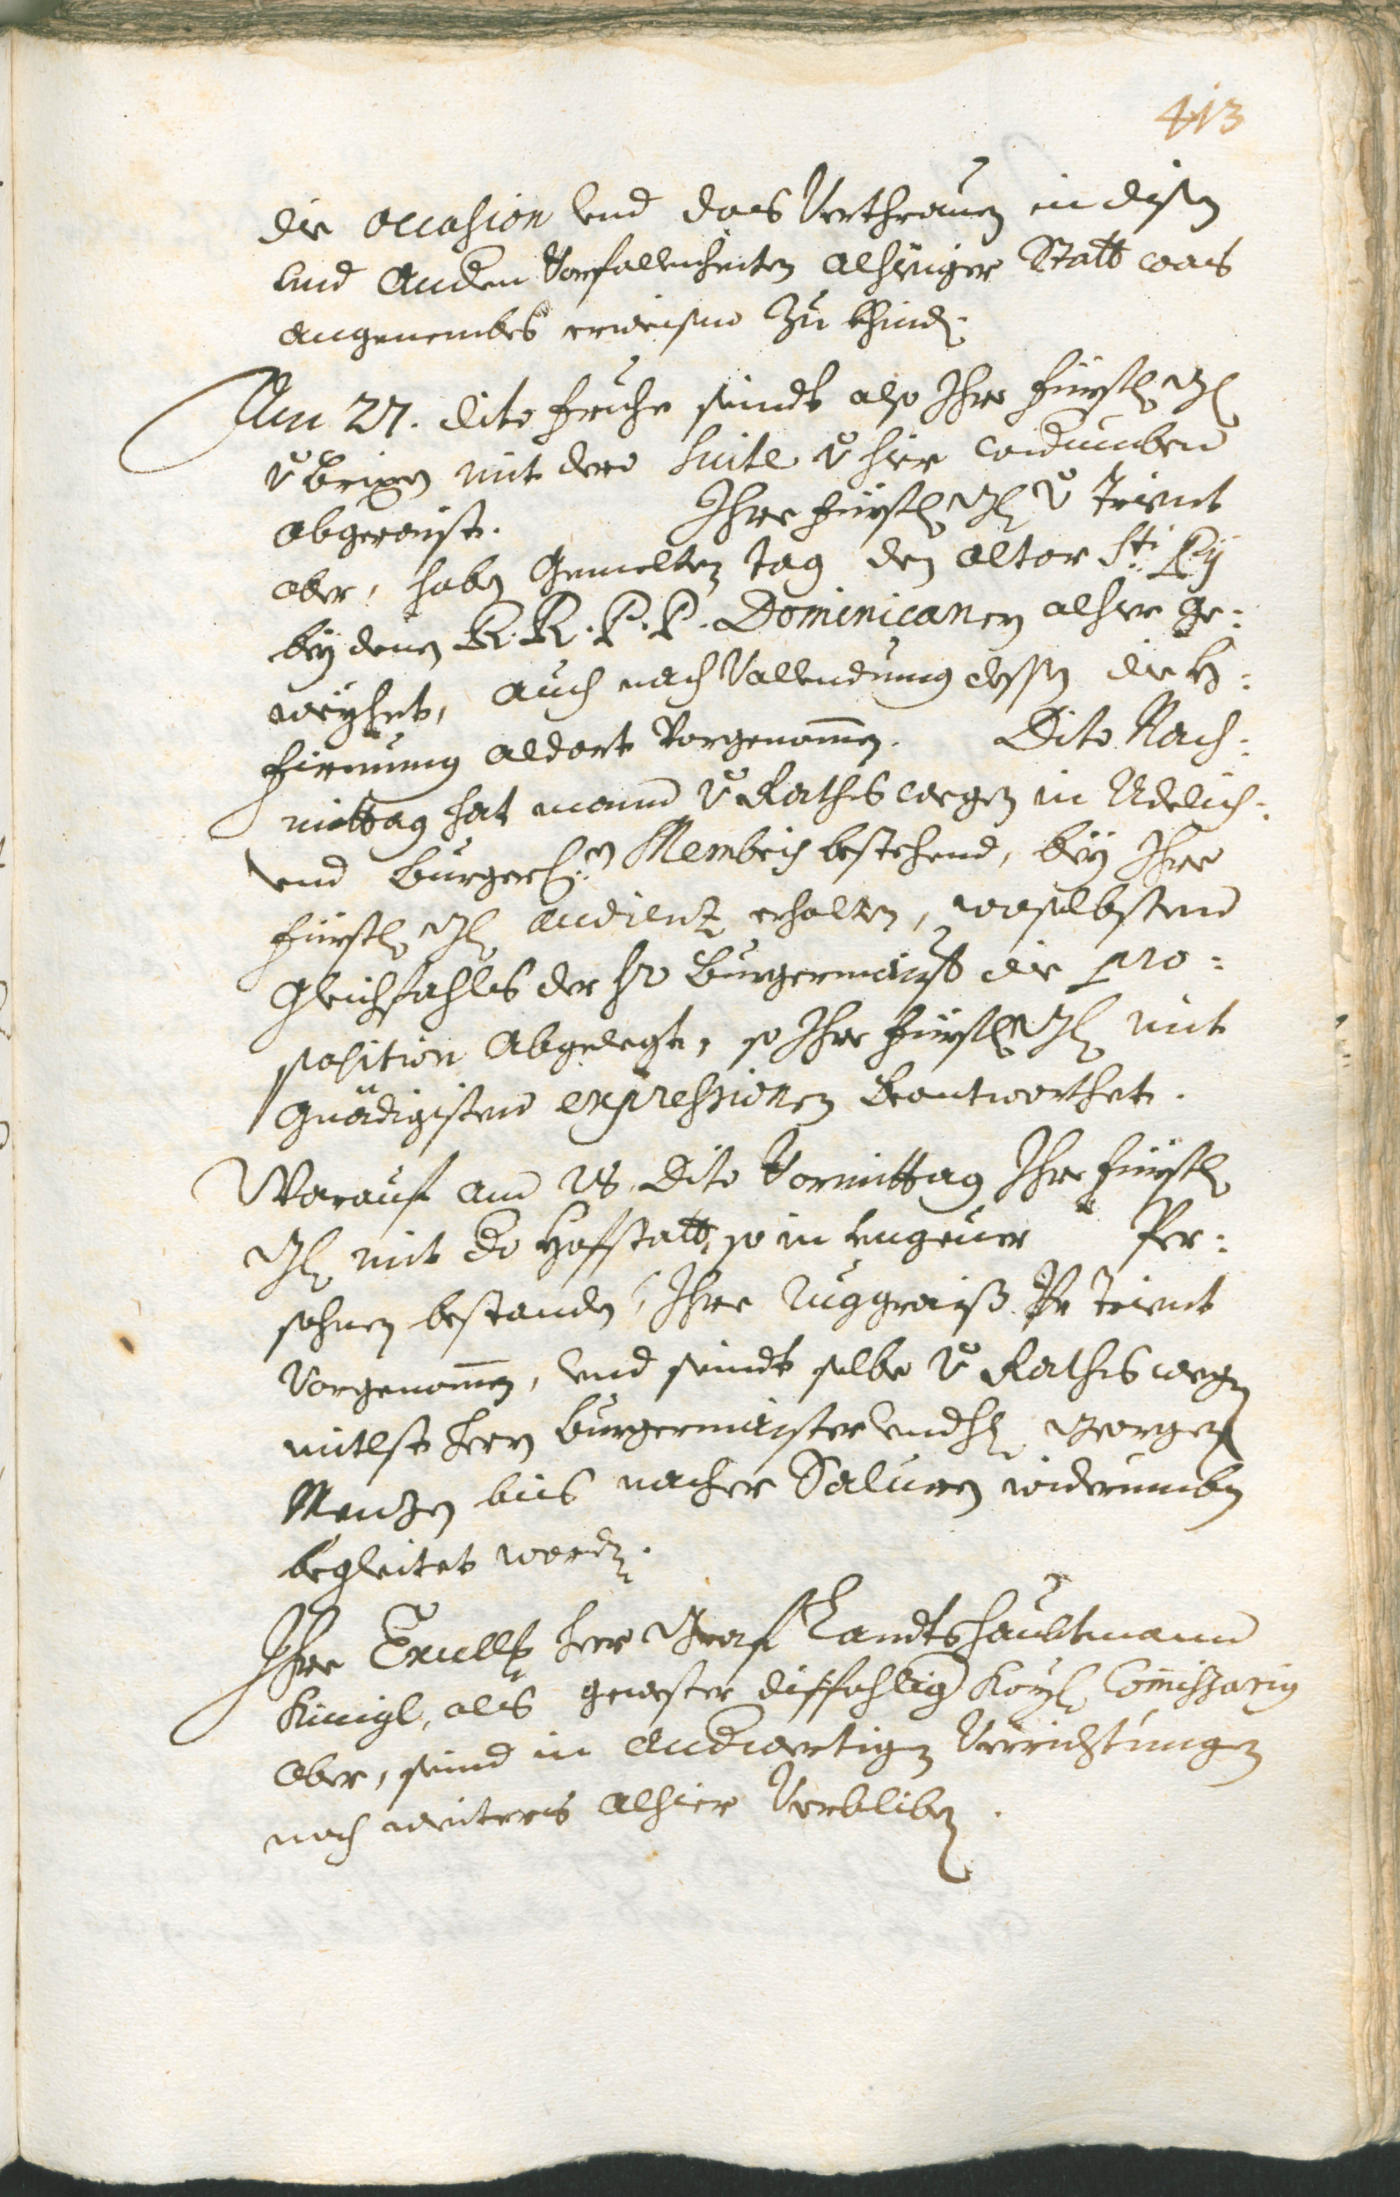 413
die occasion vnd das Verthrauen in disen
vnd Andern Vorfallenheiten alhieiger Statt was
angenembes erweisen zu khinden.
Am 27. dito fruhe seindt also Ihro fürstl: Gl:
v: Brixen mit dero Suite v: hier widerumben
abgeraist. Ihre fürstl: Gl: v: Trient
aber, haben gemelten tag den altar Sti: Pij
bey denen R. R. P. P. Dominicanern alhier ge=
weyhet, auch nach Vollendung dessen die H:
firmung aldort vorgenommen. Dito Nach=
mittag hat mann v: Raths wegen in Adelich=
vnd Burgerl:n Membris bestehend, bey Ihre
fürstl: Gl: audienz erhalten, woselbsten
gleichfahls der Hr Burgermaister die pro=
position abgelegt, so Ihre fürstl: Gl: mit
gnädigisten expressionen beantworthet.
Warauf am 28. Dito Vormittag Ihre fürstl:
Gl: mit do Hofstatt, so in Per=
sohnen bestanden, Ihre ruggraiß Pr Trient
vorgenommen, vnd seindt selbe v: Raths wegen
mitlst Herrn Burgermaister vnd H: Georgen
Menzen bis nacher Salurn widerumben
begleitet worden.
Ihre Excell: Herr Graf Landtshaubtmann
Künigl, als gewester dissfahlig Kayl: Commissarig
aber, seind in Verrichtungen
noch weiters alhier Verbliben.